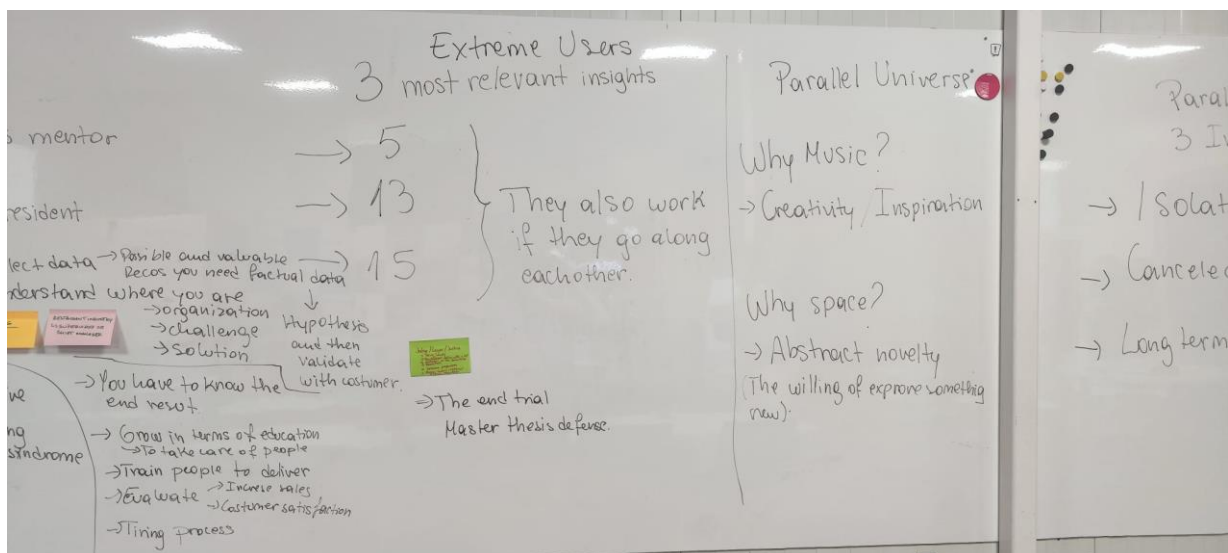 Extreme Users
3 most relevant insights
mentor
→ 5
→ 13
resident
lect data → Posible and valuable → 15
Recos you need factual data
nderstand where you are
→ organization
→ challenge
→ Solution
↓
Hypothesis
and then
validate
with costumer.
They also work
if they go along
eachother.
→ You have to know the
end resut
→ Grow in terms of education
→ To take care of people
→ Train people to deliver
→ Evaluate → Increse sales
→ Costumer satisfaction
→ Tiring process
ve
ng
syndrome
⇒ The end trial
Master thesis defense.
Parallel Universe
Why Music?
→ Creativity / Inspiration
Why space?
→ Abstract novelty
(The willing of exprore something
new).
Paral
3 I
→ Isolat
→ Cancelec
→ Long term